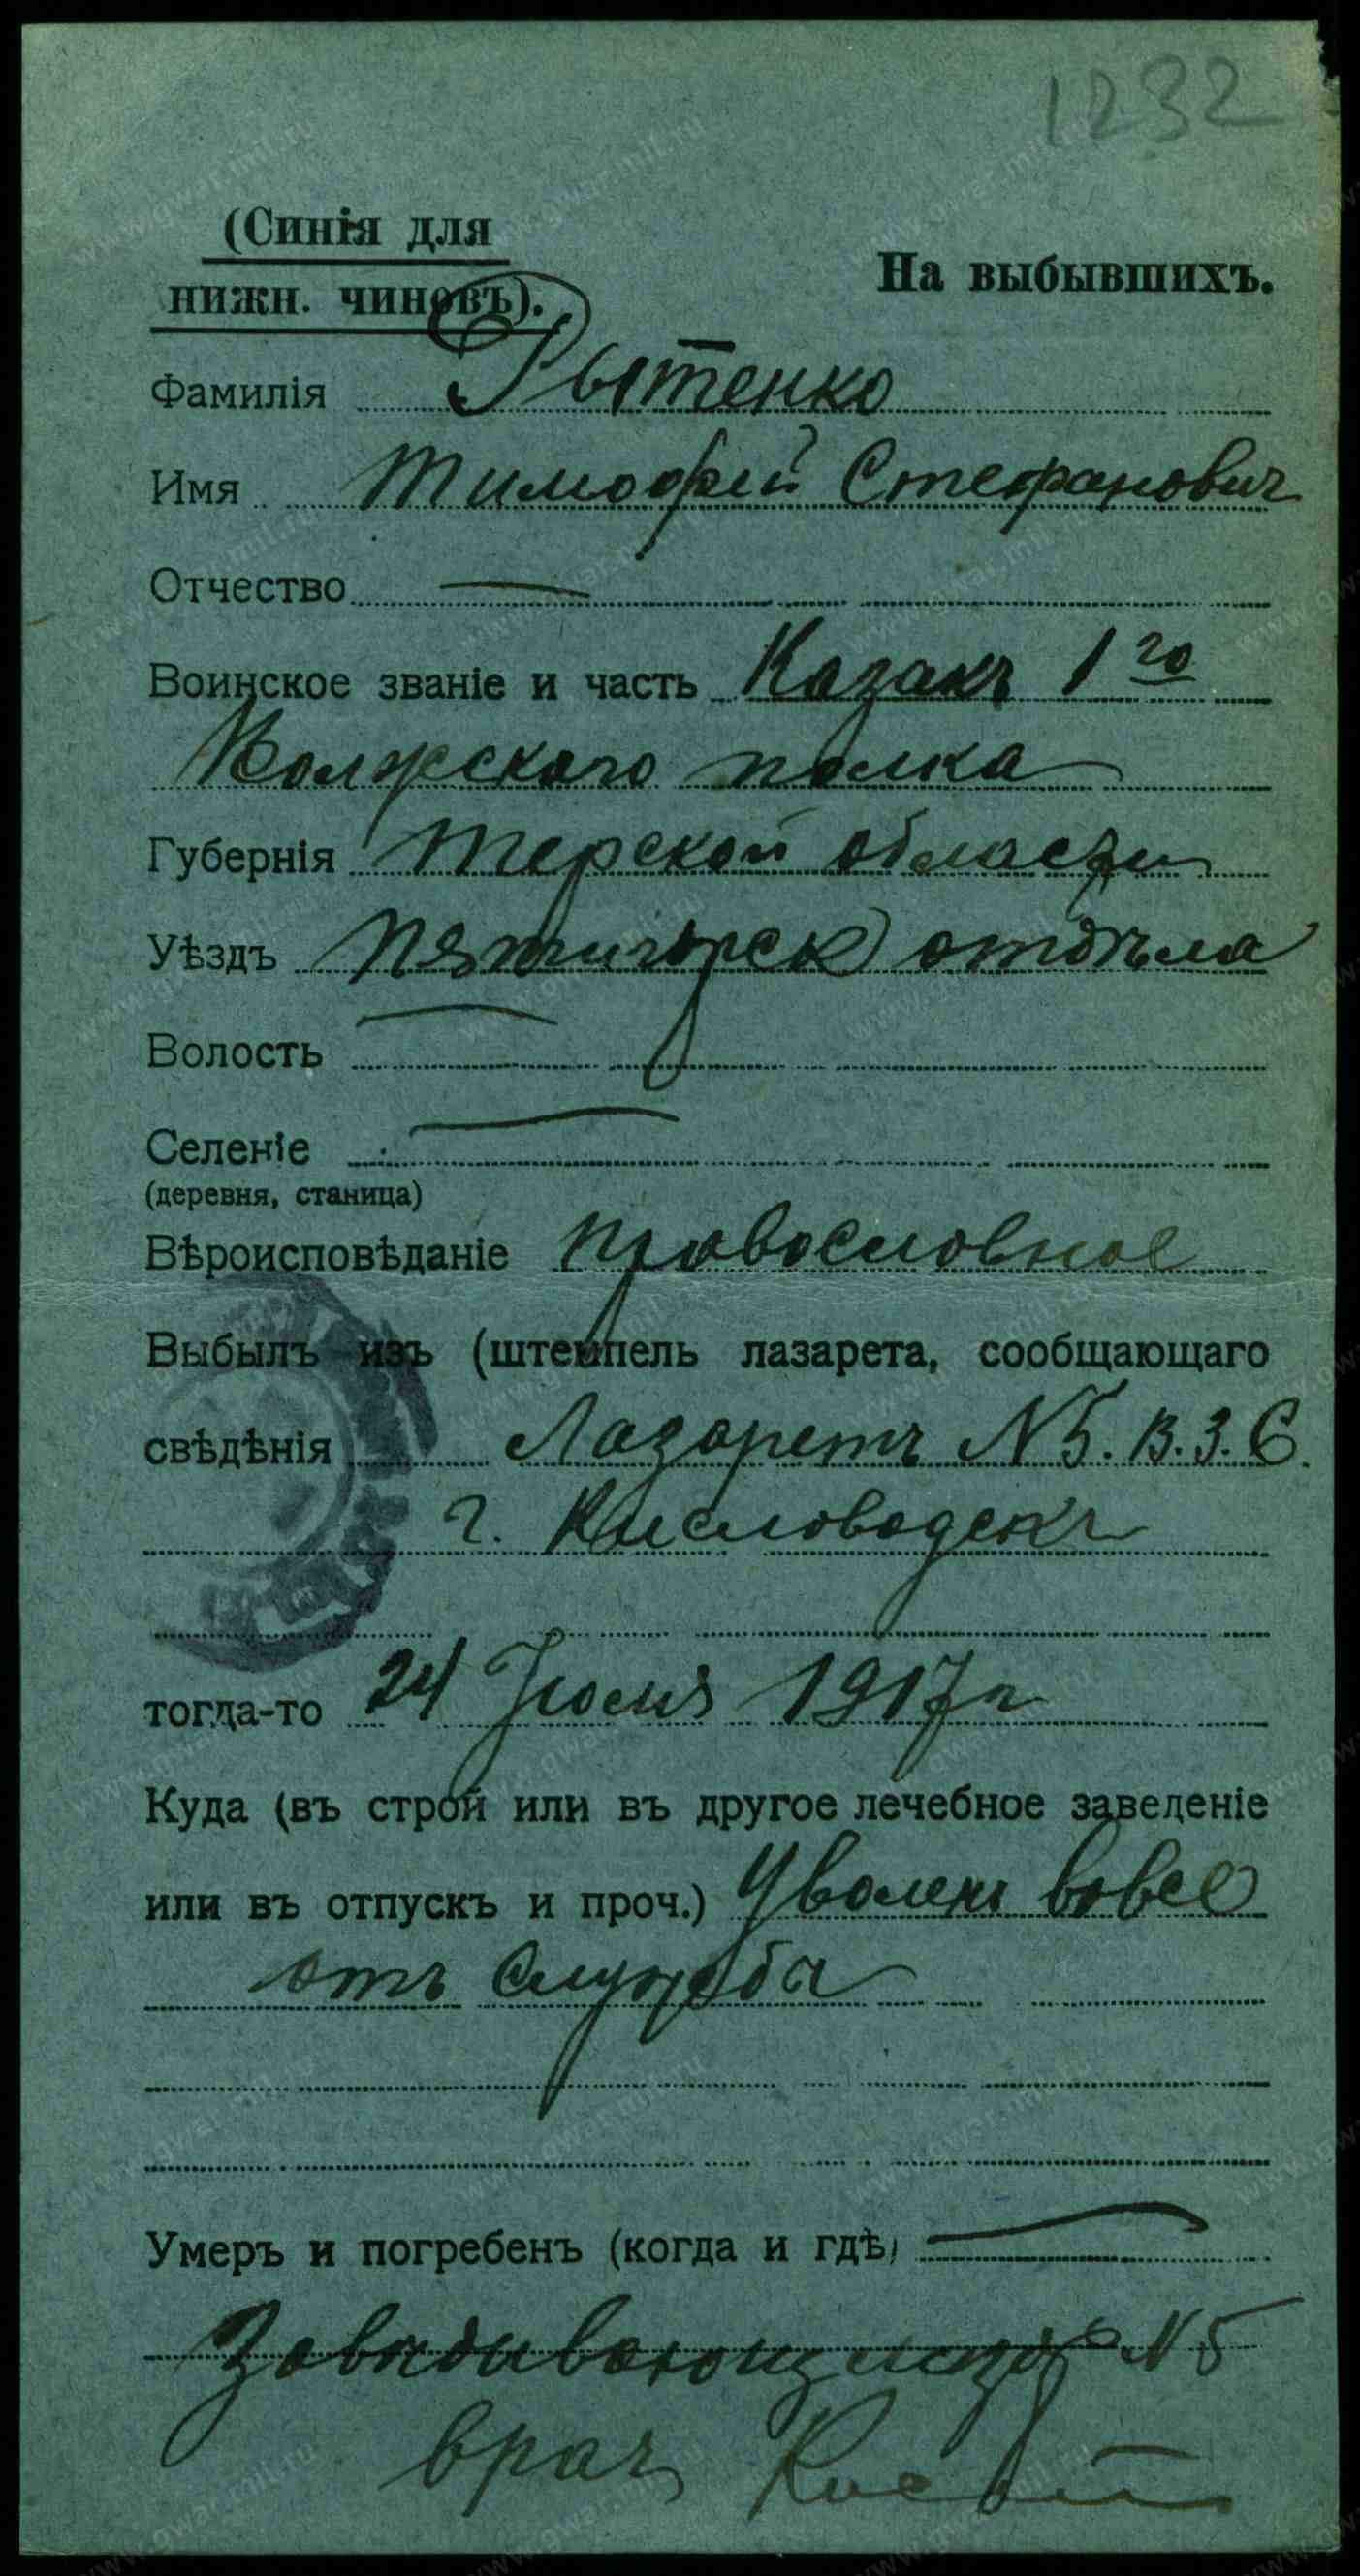 1232
(Синія для
нижн. чиновъ).
На выбывшихъ.
Фамилія Рытенко
Имя Тимофей Стефанович
Отчество —
Воинское званіе и часть Казакъ 1го
Волжского полка
Губернія Терской области
Уѣздъ Пятигорск отдѣла
Волость —
Селеніе —
(деревня, станица)
Вѣроисповѣданіе православное
Выбылъ изъ (штемпель лазарета, сообщающаго
свѣдѣнія Лазаретъ N5. В.З.С.
г. Кисловодскъ
тогда-то 24 Июля 1917г
Куда (въ строй или въ другое лечебное заведеніе
или въ отпускъ и проч.) Уволенъ вовсе
отъ службы
Умеръ и погребенъ (когда и гдѣ) —
N 5
врачъ